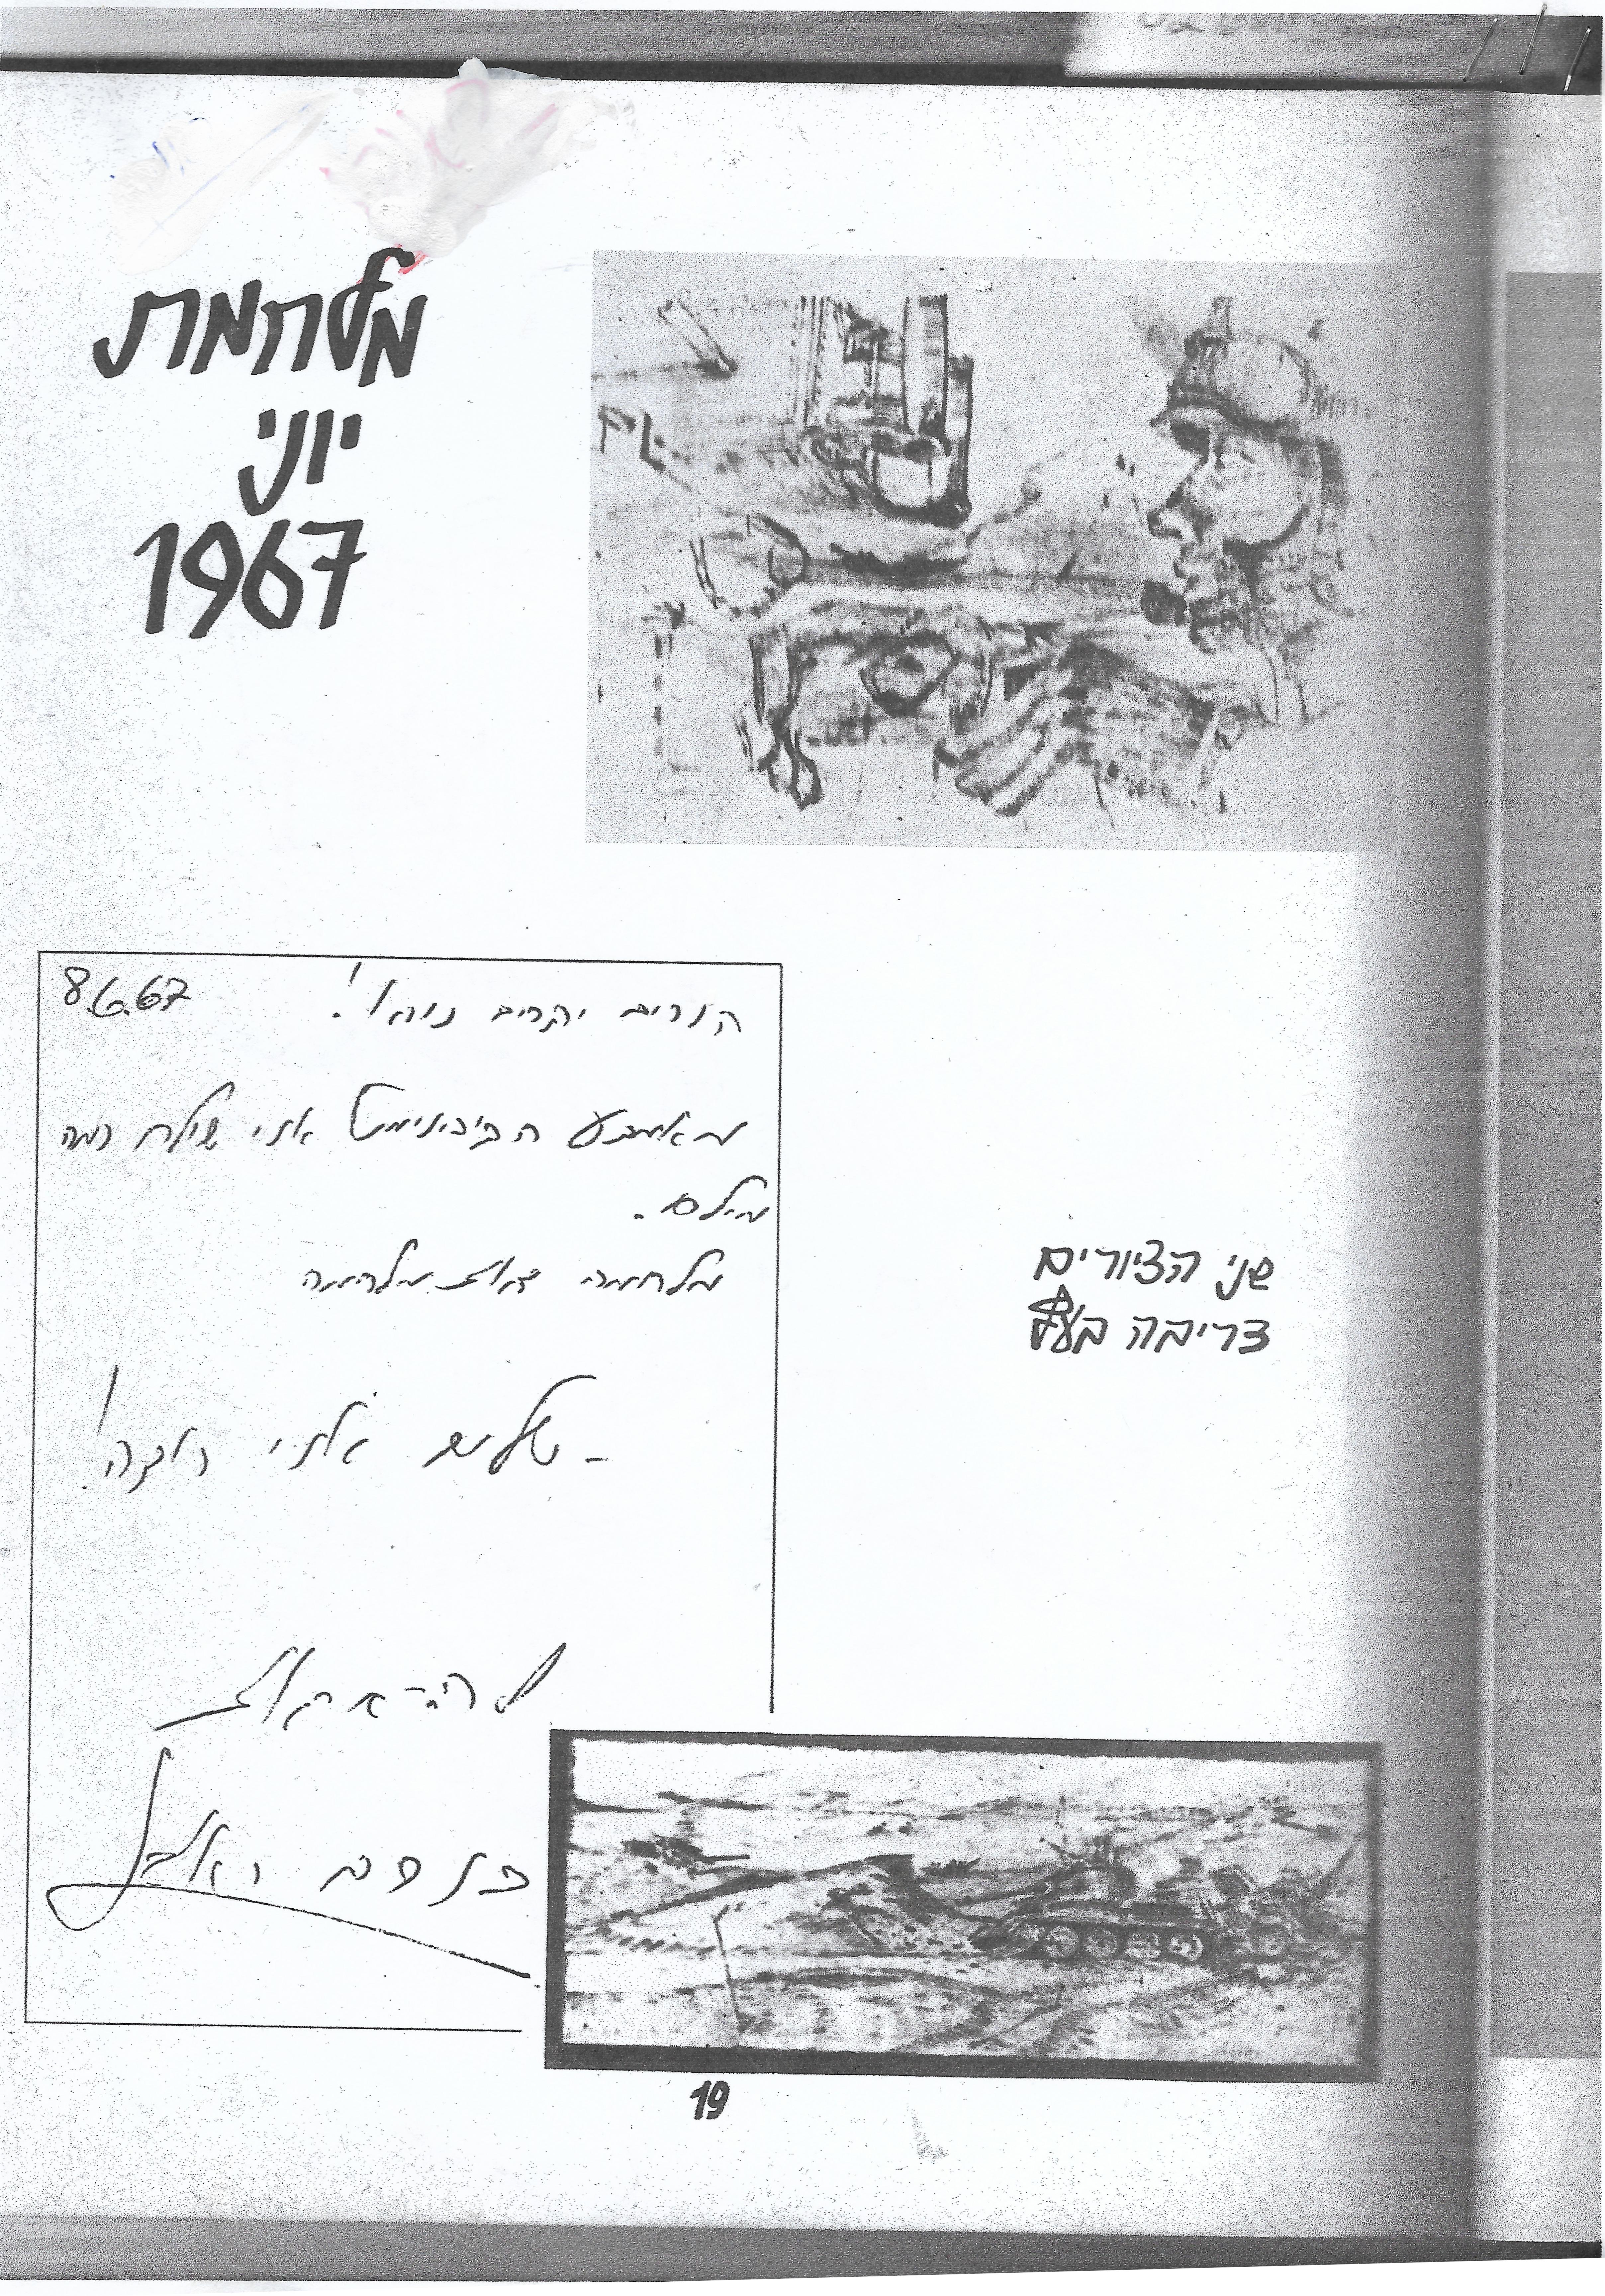 מלחמת
יוני
1967
8.6.67
הורים יקרים נוהג!
מאמצע אני שולח כמה
מילים.
מלחמה זאת מלחמה
- שלום אני רוצה!
להתראות
פנחס
שני הציורים
צריבה בעץ
19